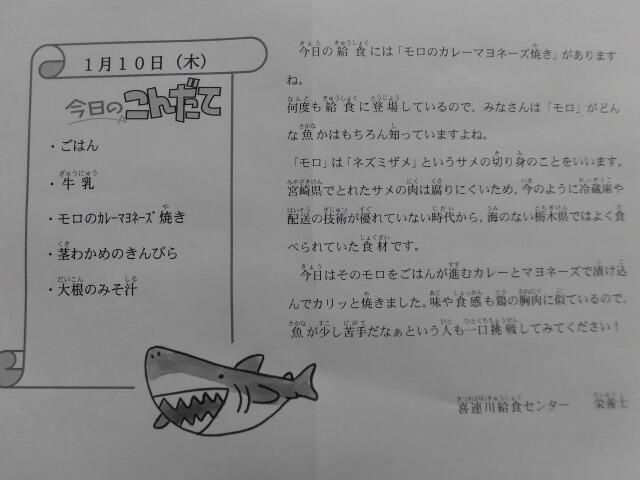 1月10日（木）
今日のこんだて
・ごはん
・牛乳
・モロのｶﾚｰﾏﾖﾈｰｽﾞ焼き
・茎わかめのきんぴら
・大根のみそ汁
今日の給食には「モロのカレーマヨネーズ焼き」があります
ね。
何度も給食に登場しているので，みなさんは「モロ」がどん
な魚かはもちろん知っていますよね。
「モロ」は「ネズミザメ」というサメの切り身のことをいいます。
宮崎県でとれたサメの肉は腐りにくいため，今のように冷蔵庫や
配送の技術が優れていない時代から，海のない栃木県ではよく食
べられていた食材です。
今日はそのモロをごはんが進むカレーとマヨネーズで漬け込
んでカリッと焼きました。味や食感も鶏の胸肉に似ているので，
魚が少し苦手だなぁという人も一口挑戦してみてください！
喜連川給食センター　栄養士